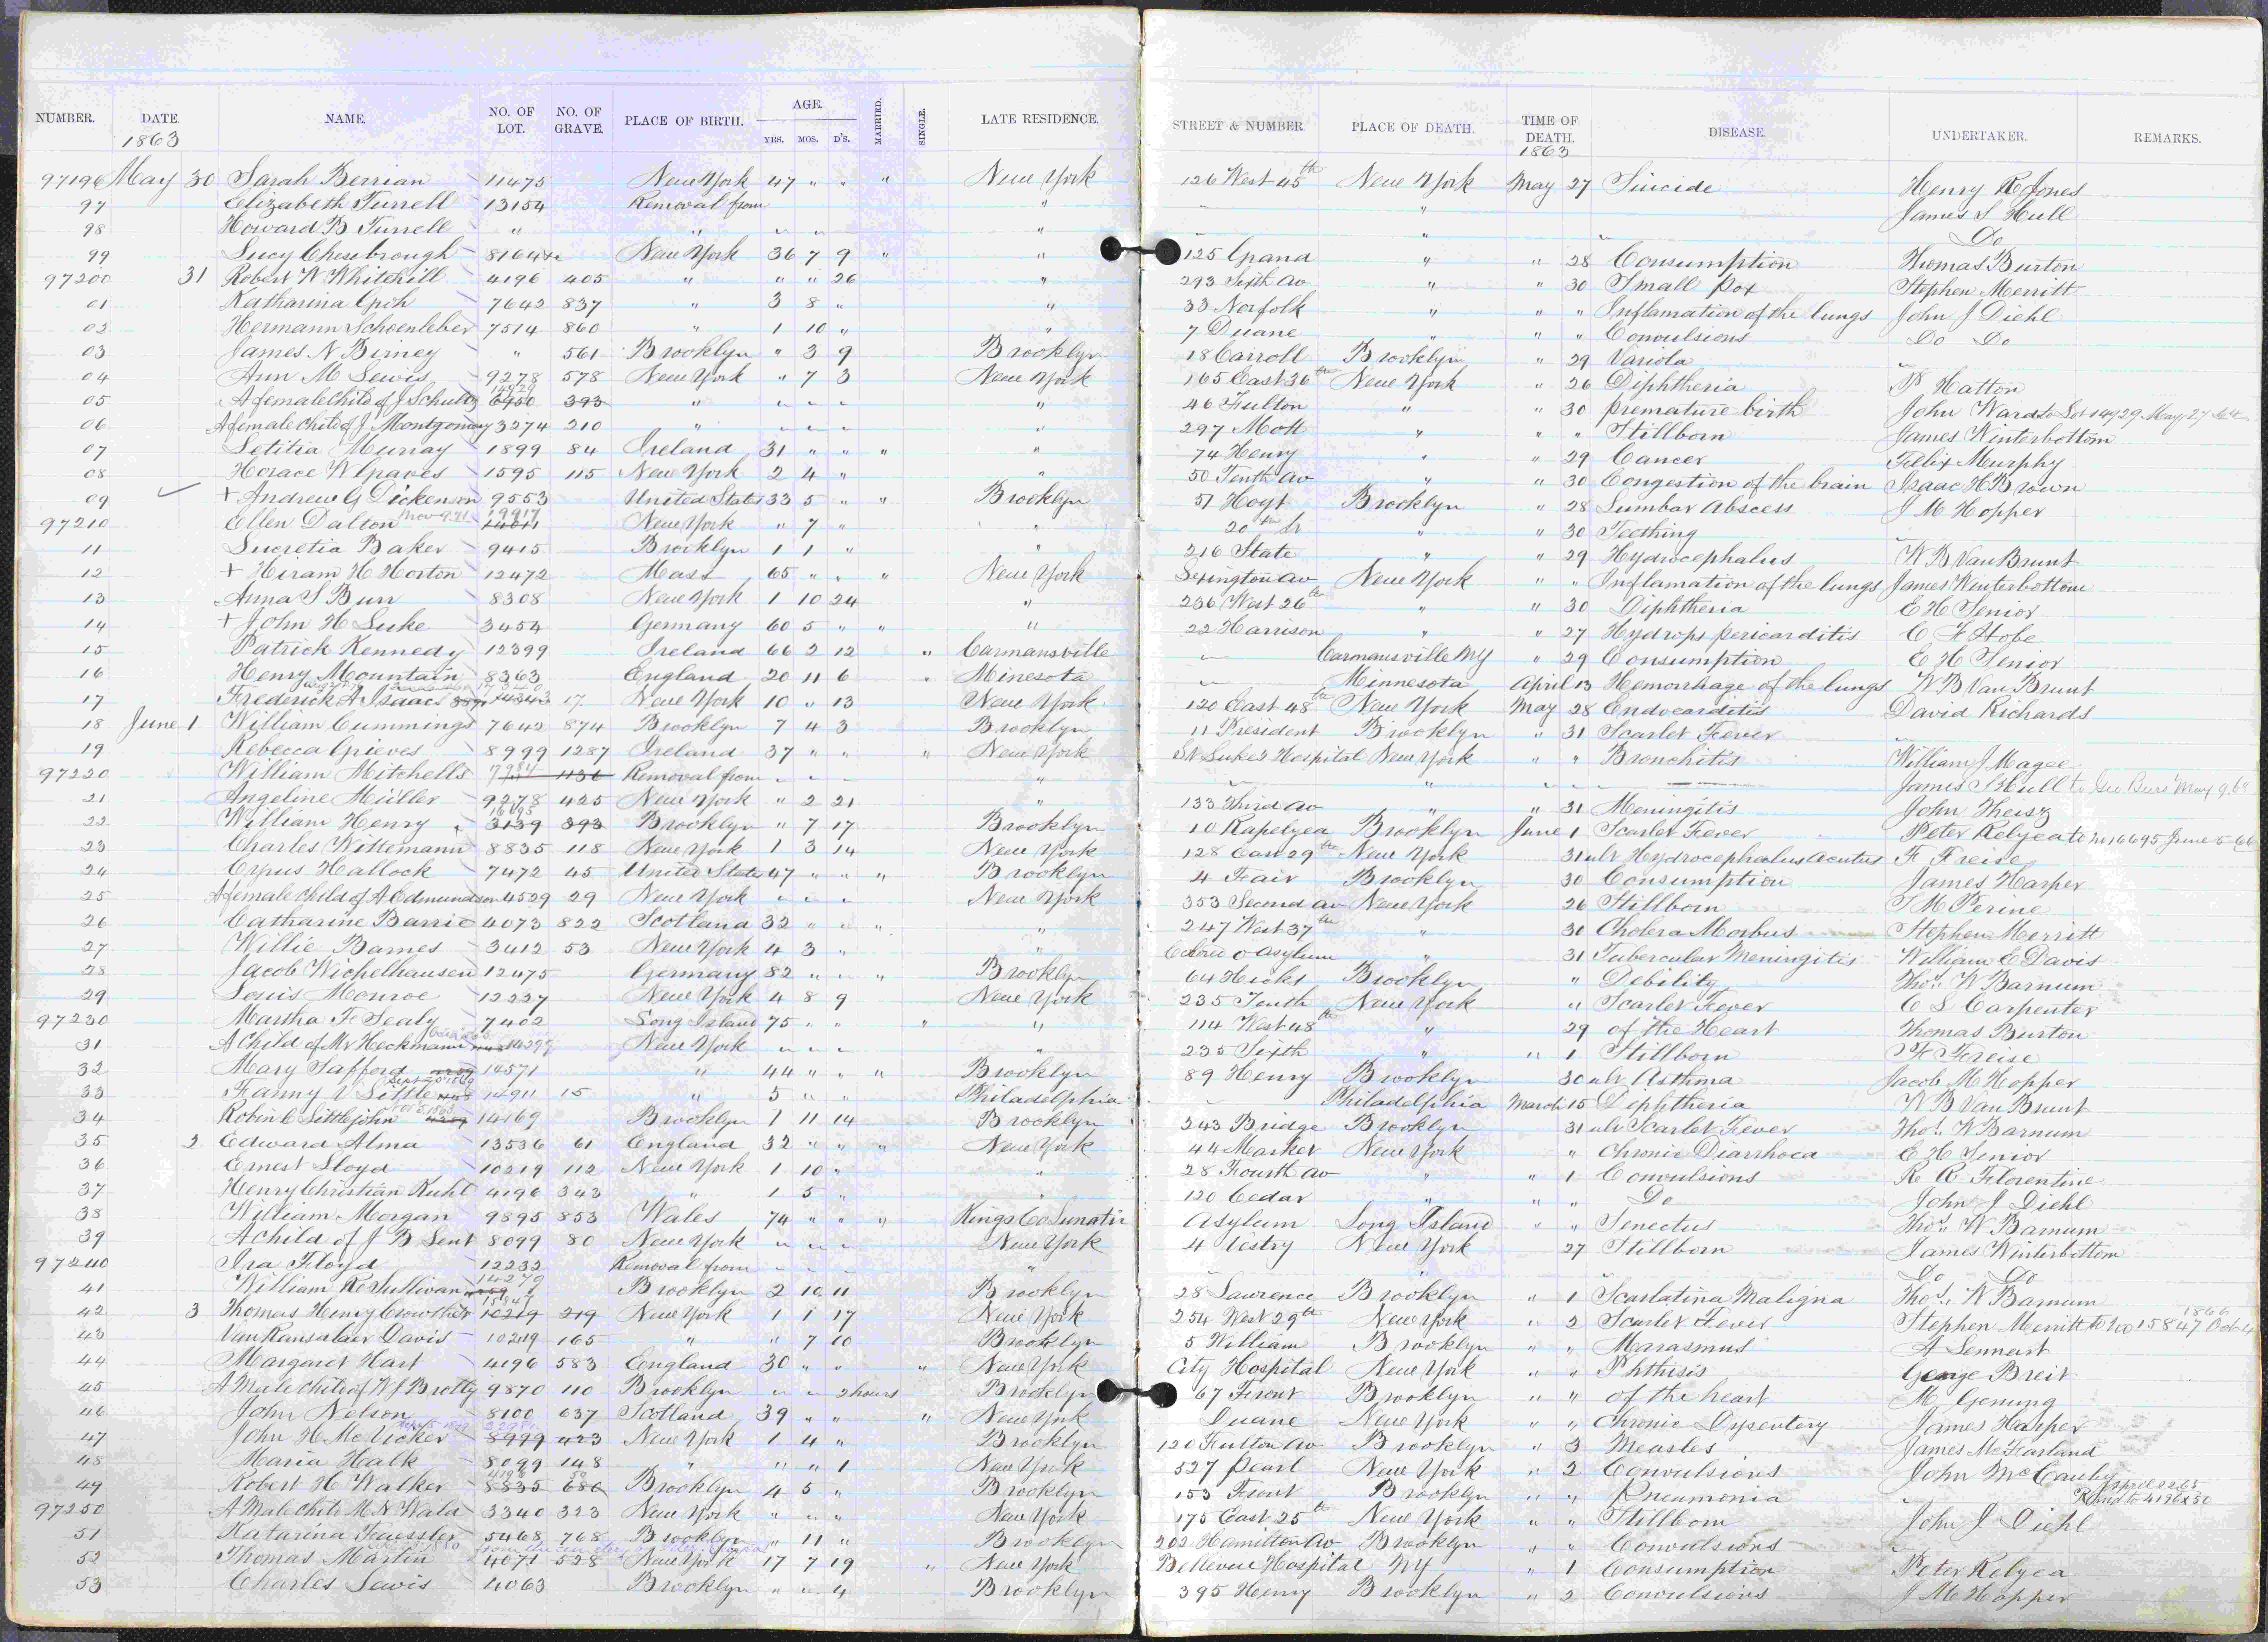 NUMBER. DATE. NAME. NO. OF LOT. NO. OF GRAVE. PLACE OF BIRTH. AGE. YRS. MOS. D'S. MARRIED. SINGLE. LATE RESIDENCE. STREET & NUMBER PLACE OF DEATH. TIME OF DEATH. DISEASE. UNDERTAKER. REMARKS.
1863 1863
97196 May 30 Sarah Berrian 11475 New York 47 " " " New York 126 West 45th New York May 27 Suicide Henry R Jones
97 Elizabeth Turrell 13154 Removal from " " James S Hull
98 Howard B Turrell " " " " Do
99 Lucy Chesebrough 8164 New York 36 7 9 " " 125 Grand " " 28 Consumption Thomas Burton
97200 31 Robert W Whitehill 4196 405 " " " 26 " 293 Sixth Av " " 30 Small Pox Stephen Merritt
01 Katharina 7642 837 " 3 8 " " 33 Norfolk " " " Inflamation of the lungs John J Diehl
02 Hermann Schoenleber 7514 860 " 1 10 " " 7 Duane " " " Convulsions Do Do
03 James N Birney " 561 Brooklyn " 3 9 Brooklyn 18 Carroll Brooklyn " 29 Variola "
04 Ann M Lewis 9278 578 New York " 7 3 New York 165 East 36th New York " 26 Diphtheria P Hatton
05 A female Child of J Schultz 14929 6450 393 " " " " " 46 Fulton " " 30 premature birth John Ward to Lot 14929 May 27 64
06 A female Child of J Montgomery 3274 210 " " " " " 297 Mott " " " Stillborn James Winterbottom
07 Letitia Murray 1899 84 Ireland 31 " " " " 74 Henry " " 29 Cancer Felix Murphy
08 Horace W Graves 1595 115 New York 2 4 " " 50 Tenth Av " " 30 Congestion of the brain Isaac H Brown
09 + Andrew G Dickenson 9553 United States 33 5 " " Brooklyn 57 Hoyt Brooklyn " 28 Lumbar Abscess J M Hopper
97210 Ellen Dalton 19917 New York " 7 " " 20th St " " 30 Teething "
11 Lucretia Baker 9415 Brooklyn 1 1 " " 216 State " " 29 Hydrocephalus W B Van Brunt
12 + Hiram H Horton 12472 Mass 65 " " " New York Lexington Av New York " " Inflamation of the lungs James Winterbottom
13 Anna S Burr 8308 New York 1 10 24 " 236 West 26th " " 30 Diphtheria E H Senior
14 + John H Luke 3454 Germany 60 5 " " " 22 Harrison " " 27 Hydrops pericarditis C F Hobe
15 Patrick Kennedy 12399 Ireland 66 2 12 " Carmansville Carmansville NY " 29 Consumption E H Senior
16 Henry Mountain 8363 England 20 11 6 " Minesota Minnesota April 13 Hemorrhage of the lungs W B Van Brunt
17 Frederick A Isaacs 14343 17 New York 10 " 13 New York 120 East 48th New York May 28 Endocarditis David Richards
18 June 1 William Cummings 7642 874 Brooklyn 7 4 3 Brooklyn 11 President Brooklyn " 31 Scarlet Fever "
19 Rebecca Grieves 8999 1287 Ireland 37 " " " New York St Luke's Hospital New York " " Bronchitis William J Magee
97220 William Mitchells 1136 Removal from " " " " " James S Hull
21 Angeline Müller 9278 425 New York " 2 21 " 133 Third Av " " 31 Meningitis John Theisz
22 William Henry 16695 3139 393 Brooklyn " 7 17 Brooklyn 10 Rapelyea Brooklyn June 1 Scarlet Fever Peter Relyea to No 16695 June 5 66
23 Charles Wittemann 8835 118 New York 1 3 14 New York 128 East 29th New York 31 ult Hydrocephalus Acutus F Freise
24 Cyrus Hallock 7472 45 United States 47 " " " Brooklyn 4 Fair Brooklyn 30 Consumption James Harper
25 A female Child of A Edmundson 4529 29 New York " " " New York 353 Second Av New York 26 Stillborn T M Perine
26 Catharine Barrie 4073 822 Scotland 32 " " " " 247 West 37th " 30 Cholera Morbus Stephen Merritt
27 Willie Barnes 3412 53 New York 4 3 " " Colored O Asylum " 31 Tubercular Meningitis William E Davis
28 Jacob Wichelhausen 12475 Germany 82 " " " Brooklyn 64 Hicks Brooklyn " Debility Thos. W Barnum
29 Louis Monroe 12237 New York 4 8 9 New York 235 Tenth New York " Scarlet Fever C S Carpenter
97230 Martha F Sealy 7402 Long Island 75 " " " " 114 West 48th " 29 of the Heart Thomas Burton
31 A Child of Mr Heckmann 14299 New York " " " " 235 Sixth " " 1 Stillborn F Freise
32 Mary Safford 14571 " 44 " " " Brooklyn 89 Henry Brooklyn 30 ult Asthma Jacob M Hopper
33 Fanny V Little 14911 15 " 5 " " Philadelphia Philadelphia March 15 Dephtheria W B Van Brunt
34 Robin C Littlejohn 14169 Brooklyn 1 11 14 Brooklyn 243 Bridge Brooklyn 31 ult Scarlet Fever Thos. W Barnum
35 2 Edward Alma 13536 61 England 32 " " " New York 44 Market New York " Chronic Diarrhoea E H Senior
36 Ernest Lloyd 10219 112 New York 1 10 " " 28 Fourth Av " " 1 Convulsions R R Florentine
37 Henry Christian Kuhl 4196 343 " 1 5 " " 120 Cedar " " " Do John J Diehl
38 William Morgan 9895 853 Wales 74 " " " Kings Co Lunatic Asylum Long Island " " Senectus Thos. W Barnum
39 A child of J B Lent 8099 80 New York " " " New York 4 Vestry New York 27 Stillborn James Winterbottom
97240 Ira Floyd 12232 Removal from " " " " " Do Do
41 William R Sullivan 14279 Brooklyn 2 10 11 Brooklyn 28 Lawrence Brooklyn " 1 Scarlatina Maligna Thos. W Barnum
42 3 Thomas Henry Crowther 15847 10219 219 New York 1 1 17 New York 254 West 29th New York " 2 Scarlet Fever Stephen Merritt to No 15847 Oct 4 1866
43 Van Ransalaer Davis 10219 165 " " 7 10 Brooklyn 5 William Brooklyn " " Marasmus A Lennert
44 Margaret Hart 4196 583 England 30 " " " New York City Hospital New York " " Phthisis George Breit
45 A Male Child of W J Brotty 9870 110 Brooklyn " " 2 hours Brooklyn 67 Front Brooklyn " " of the heart M Genung
46 John Nelson 8100 637 Scotland 39 " " " New York Duane New York " " Chronic Dysentery James Harper
47 John H McVicker 22981 8999 423 New York 1 4 " Brooklyn 120 Fulton Av Brooklyn " 3 Measles James McFarland
48 Maria Halk 8099 148 " " " 1 New York 527 Pearl New York " 2 Convulsions John McCauly
49 Robert H Walker 4196 50 8835 686 Brooklyn 4 5 " Brooklyn 153 Front Brooklyn " " Pneumonia " April 22 65 Rmd to 4196 x 50
97250 A Male Child M N Wald 3340 323 New York " " " New York 175 East 25th New York " " Stillborn John J Diehl
51 Katarina Faessler 5468 768 Brooklyn " 11 " Brooklyn 202 Hamilton Av Brooklyn " " Convulsions "
52 Thomas Martin 4071 528 New York 17 7 19 " New York Bellevue Hospital NY " 1 Consumption Peter Relyea
53 Charles Lewis 4063 Brooklyn " " 4 Brooklyn 395 Henry Brooklyn " 2 Convulsions J M Hopper